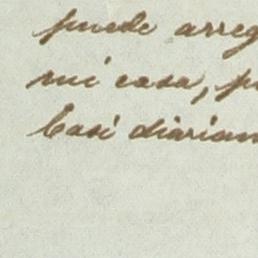 puede arreg
mi casa, p
Casi diariam